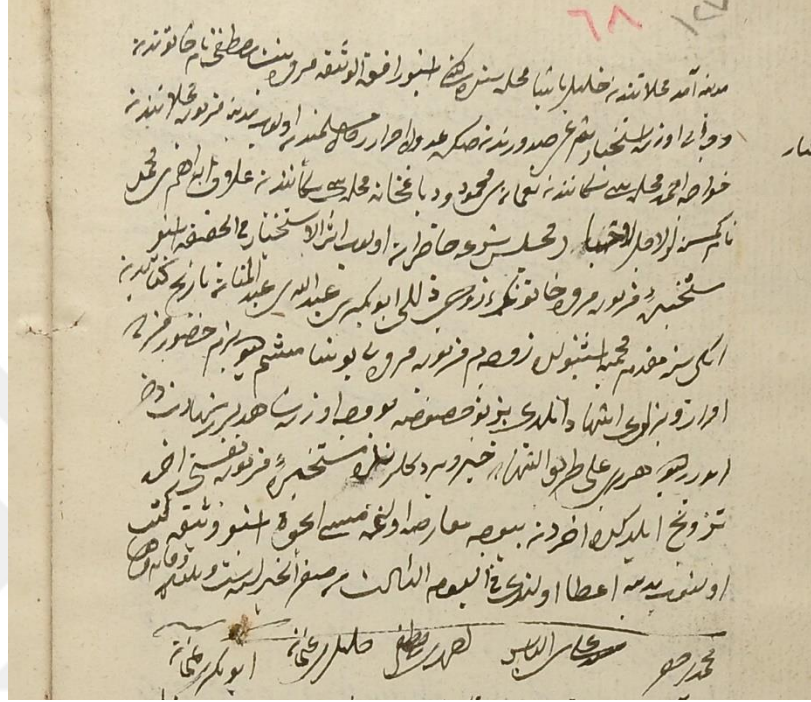 ٦٨
١٢٧
مدينه آمد محلاتندن خليل پاشا محله سنده ساكنه اشبو رافعة الوثيقه مروه بنت مصطفى نام خاتوندن
اوزره استخبار شرعى صدورندن صكره عدول احرار رجال مسلميندن اولوب مدينه مزبوره محلاتندن
خواجه احمد محله سى سكانندن نعمان بن محمود ودباغخانه محله سى سكانندن على وابراهيم بن محمد
نام كمسنه لر لاجل الاخبار مجلس شرعه حاضران اولوب اثر الاستخبار فى الحقيقه اشبو
مستخبره مزبوره مروه خاتونك زوجى ابو بكر بن عبدالله بن عبدالمنان تاريخ كتابدن
ايكى سنه مقدم محميه استنبولده زوجه م مزبوره مروه يى بوشامشم ديو بزم حضورمزده
اقرار وبزلرى اشهاد ايلدى بز بو خصوصه بو وجه اوزره شاهدلريز شهادت دخى
ايدرز ديو هر برى على طريق الشهاده خبر ويردكلرنده مستخبره مزبوره نفسنى آخره
تزويج ايلدكده آخردن بر وجهله معارضه اولنمامسيچون اشبو وثيقه كتب
اولنوب يدينه اعطا اولندى فى اليوم الثالث من صفر الخير لسنه
محمد رجب
على الياس
احمد بن مصطفى
خليل بن عثمان
ابو بكر بن عثمان